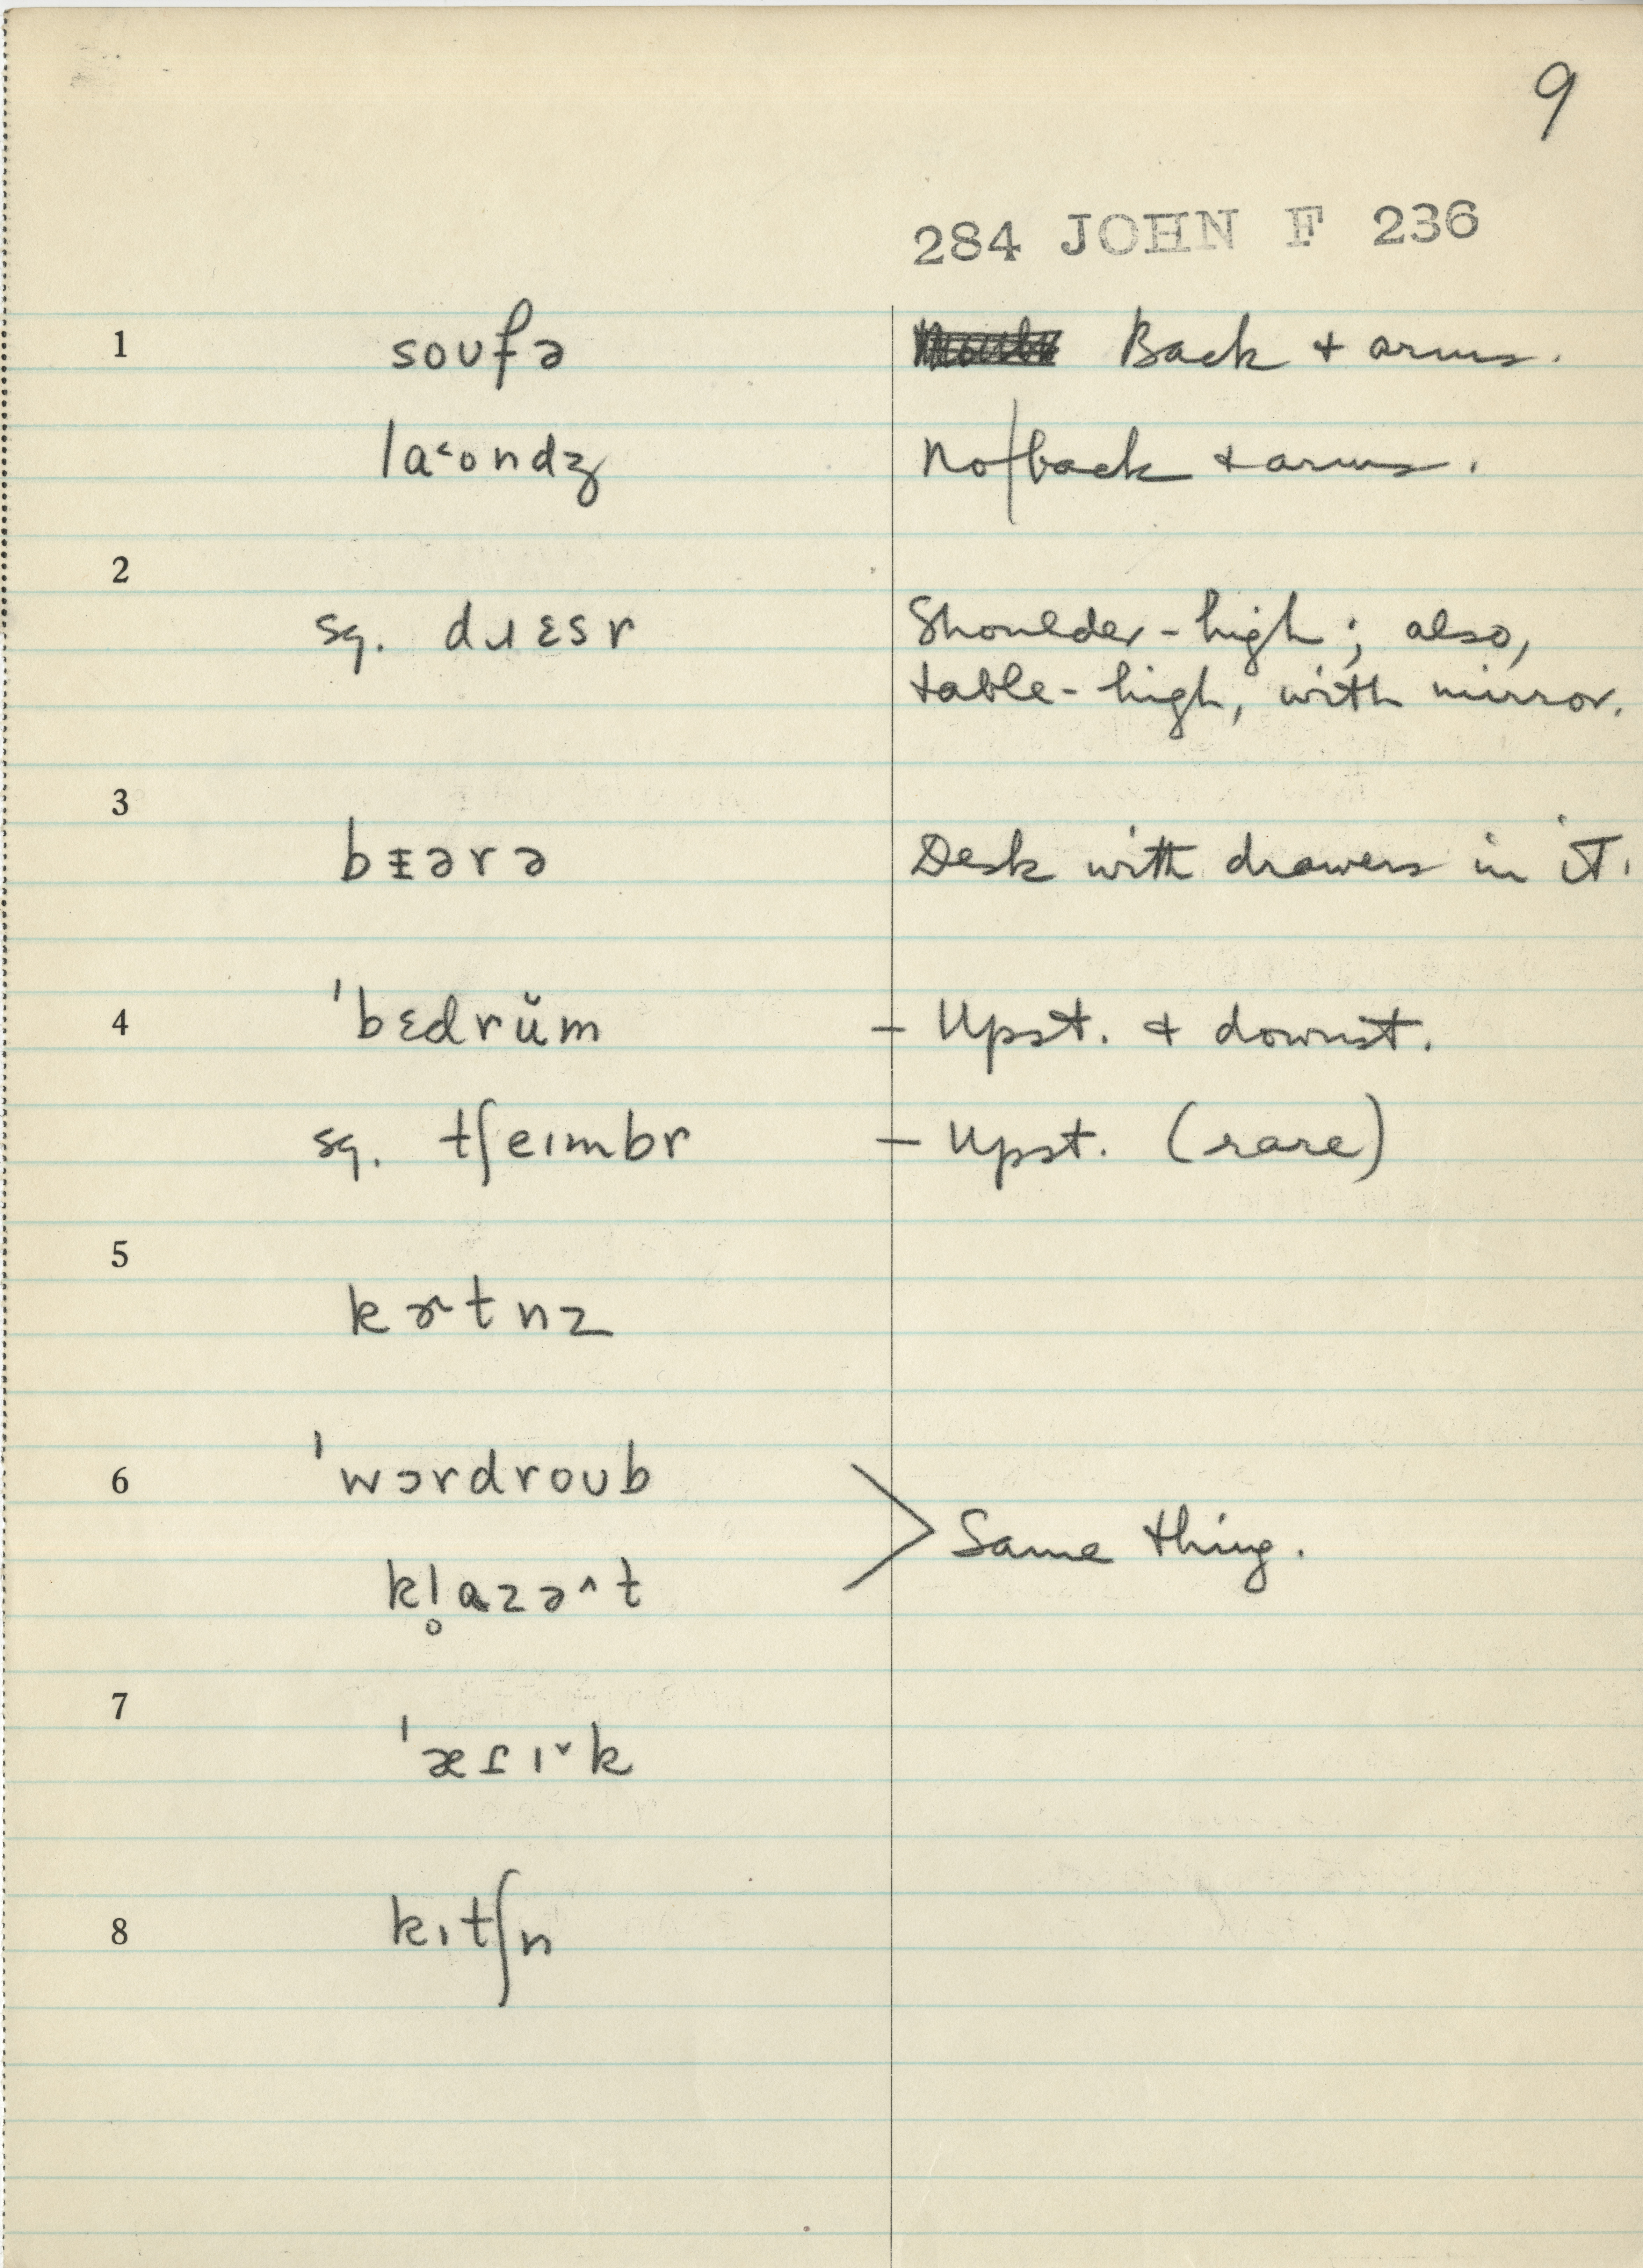 9
284 JOHN F 236
1 soufə Back + arms.
la˂ondʒ No/back + arms.
2
sq. dɹɛsr Shoulder-high; also,
table-high, with mirror.
3
bɪ̵ərə Desk with drawers in it.
4 'bɛdrŭm – Upst. + downst.
sq. tʃeɪmbr – Upst. (rare)
5
kɚtnz
6 'wɔrdroʊb
> Same thing.
kl̥ɑzə^t
7
'æɾɪˇk
8 kɪtʃn